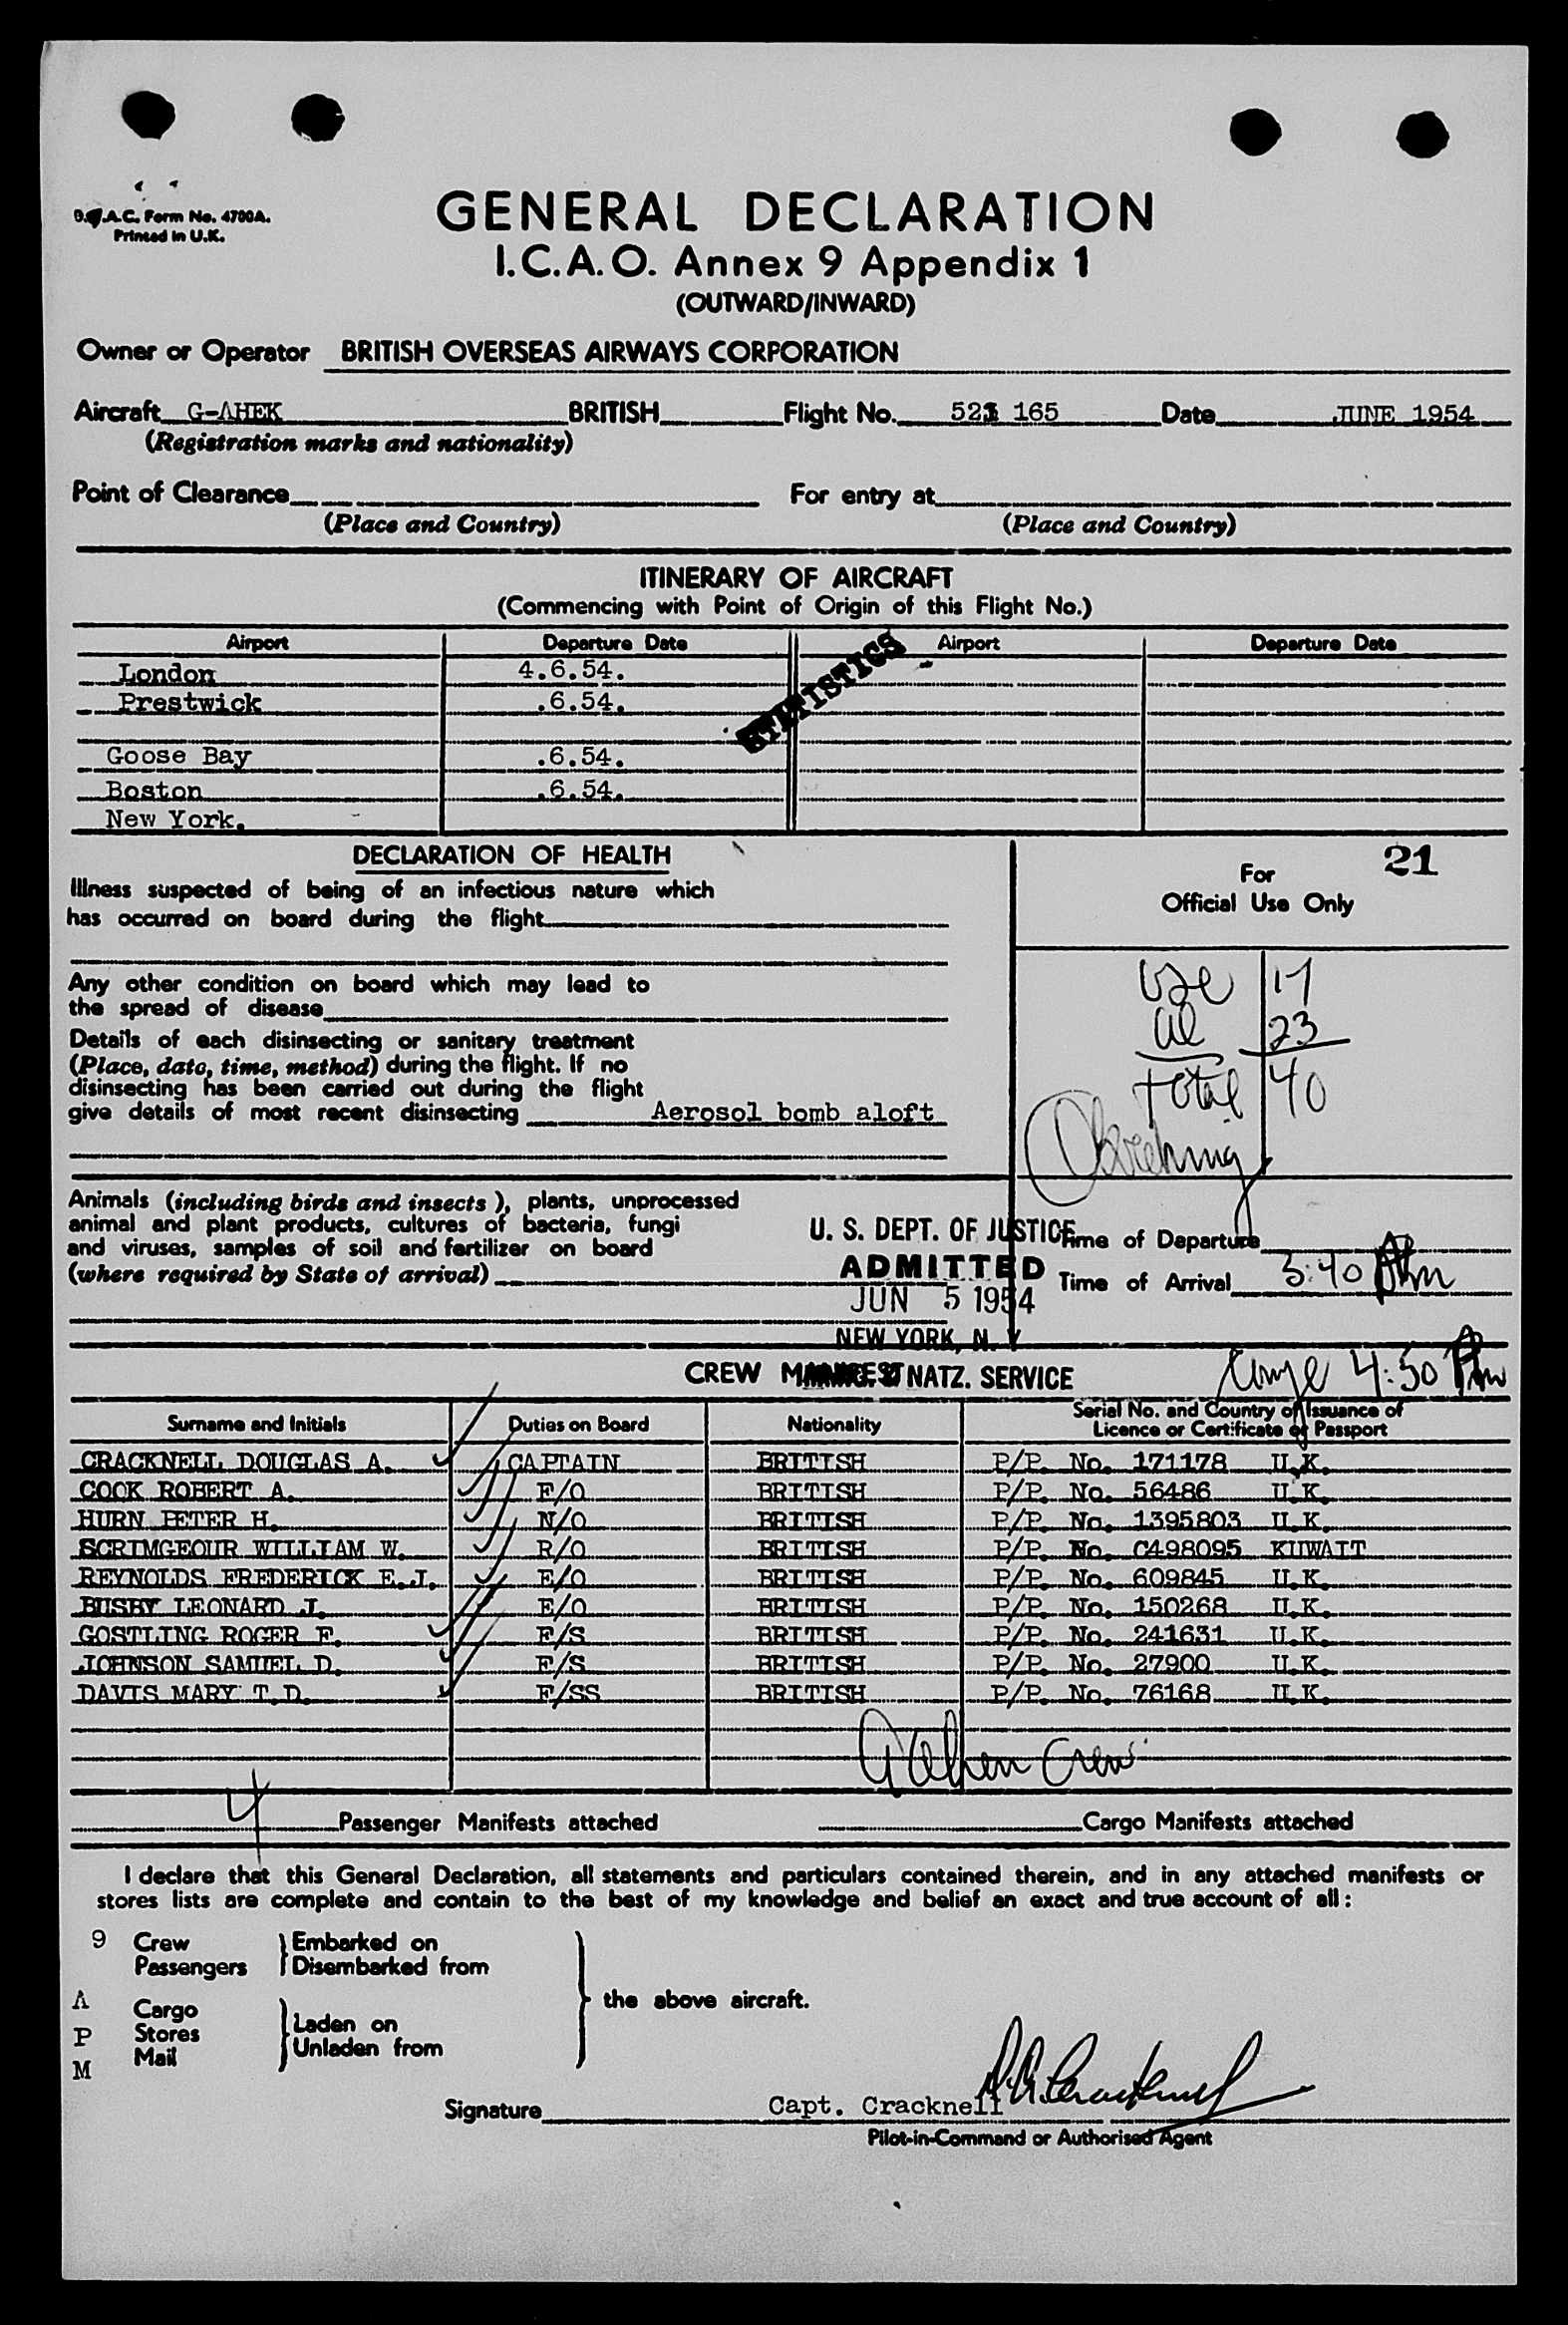 B.O.A.C. Form No. 4700A.
Printed in U.K.
GENERAL DECLARATION
I.C.A.O. Annex 9 Appendix 1
(OUTWARD/INWARD)
Owner or Operator BRITISH OVERSEAS AIRWAYS CORPORATION
Aircraft G-AHEK BRITISH Flight No. 521 165 Date JUNE 1954
(Registration marks and nationality)
Point of Clearance For entry at
(Place and Country) (Place and Country)
ITINERARY OF AIRCRAFT
(Commencing with Point of Origin of this Flight No.)
Airport Departure Date Airport Departure Date
STATISTICS
London 4.6.54.
Prestwick .6.54.
Goose Bay .6.54.
Boston .6.54.
New York.
DECLARATION OF HEALTH
Illness suspected of being of an infectious nature which
has occurred on board during the flight
Any other condition on board which may lead to
the spread of disease
Details of each disinsecting or sanitary treatment
(Place, date, time, method) during the flight. If no
disinsecting has been carried out during the flight
give details of most recent disinsecting Aerosol bomb aloft
For 21
Official Use Only
17
al 23
Total 40
Animals (including birds and insects), plants, unprocessed
animal and plant products, cultures of bacteria, fungi
and viruses, samples of soil and fertilizer on board
(where required by State of arrival)
U. S. DEPT. OF JUSTICE
ADMITTED
JUN 5 1954
NEW YORK, N. Y
NATZ. SERVICE
Time of Departure
Time of Arrival 3:40 Pm
4:50 Pm
CREW MANIFEST
Surname and Initials Duties on Board Nationality Serial No. and Country of Issuance of
Licence or Certificate or Passport
CRACKNELL DOUGLAS A. CAPTAIN BRITISH P/P. No. 171178 U.K.
COOK ROBERT A. F/O BRITISH P/P. No. 56486 U.K.
HURN PETER H. N/O BRITISH P/P. No. 1395803 U.K.
SCRIMGEOUR WILLIAM W. R/O BRITISH P/P. No. C498095 KUWAIT
REYNOLDS FREDERICK E.J. E/O BRITISH P/P. No. 609845 U.K.
BUSBY LEONARD J. E/O BRITISH P/P. No. 150268 U.K.
GOSTLING ROGER F. F/S BRITISH P/P. No. 241631 U.K.
JOHNSON SAMUEL D. F/S BRITISH P/P. No. 27900 U.K.
DAVIS MARY T.D. F/SS BRITISH P/P. No. 76168 U.K.
Crew
4 Passenger Manifests attached Cargo Manifests attached
I declare that this General Declaration, all statements and particulars contained therein, and in any attached manifests or
stores lists are complete and contain to the best of my knowledge and belief an exact and true account of all:
9 Crew Embarked on
Passengers Disembarked from
the above aircraft.
A Cargo
P Stores Laden on
M Mail Unladen from
Signature Capt. Cracknell D.A. Cracknell
Pilot-in-Command or Authorised Agent